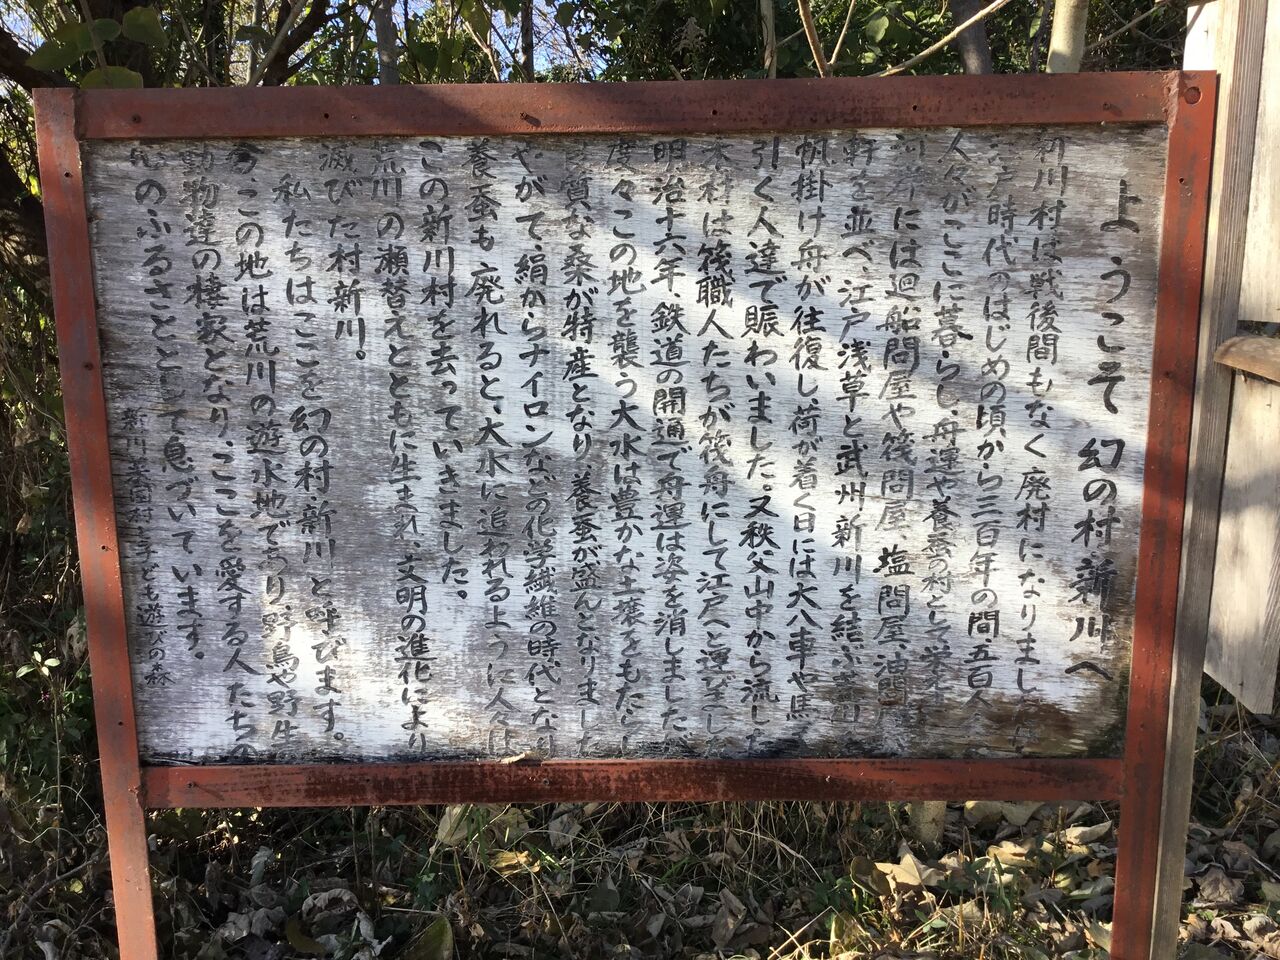 ようこそ 幻の村・新川へ
新川村は戦後間もなく廃村になりました
江戸時代のはじめの頃から三百年の間五百人
人々がここに暮らし、舟運や養蚕の村として栄え
河岸には廻船問屋や筏問屋、塩問屋、油問屋
軒を並べ、江戸浅草と武州新川を結ぶ
帆掛け舟が往復し、荷が着く日には大八車や馬
引く人達で賑わいました。又秩父山中から流した
木材は筏職人たちが筏舟にして江戸へと運びました
明治十六年、鉄道の開通で舟運は姿を消しましたが
度々この地を襲う大水は豊かな土壌をもたらし
良質な桑が特産となり、養蚕が盛んとなりました
やがて、絹からナイロンなどの化学繊維の時代となり
養蚕も廃れると、大水に追われるように人々は
この新川村を去っていきました。
荒川の瀬替えとともに生まれ、文明の進化により
滅びた村新川。
私たちはここを幻の村・新川と呼びます。
今、この地は荒川の遊水地であり野鳥や野生
動物達の棲家となり、ここを愛する人たちの
心のふるさととして息づいています。
新川菜園村・子ども遊びの森